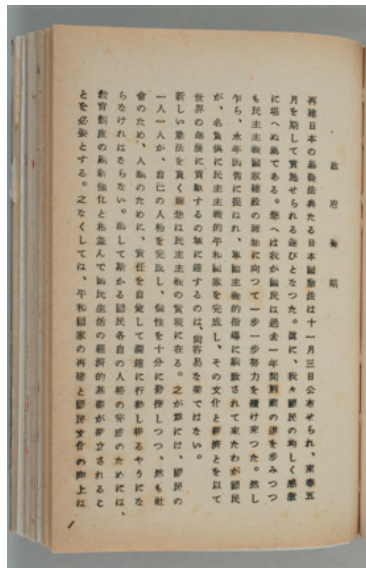 政府聲明
再建日本の基幾法典たる日本國憲法は十一月三日公布せられ、來春五
月を期して實施せられる運びとなつた。眞に、我々國民の均しく感激
に堪へぬ處である。想へば我が國民は過去一年間荊棘の道を歩みつつ
も民主主義國家建設の理想に向つて一歩一歩努力を續け來つた。然し
乍ら、永年因習に捉はれ、軍國主義的指導に馴致されて來たわが國民
が、名實俱に民主主義的平和國家を完成し、その文化と經濟とを以て
世界の進展に貢献するの域に達するのは、尙容易な業ではない。
新しい憲法を貫く理想は民主主義の實現に在る。之が爲には、國民の
一人一人が、自己の人格を完成し、個性を十分に發揮しつつ、然も社
會のため、人類のために、責任を自覺して濶達に行動し得るやうにな
らなければならない。而して斯かる國民各自の人格の完成のためには、
教育制度の刷新强化と相並んで國民生活の經濟的基礎が確立されるこ
とを必要とする。之なくしては、平和國家の再建と國民文化の向上は